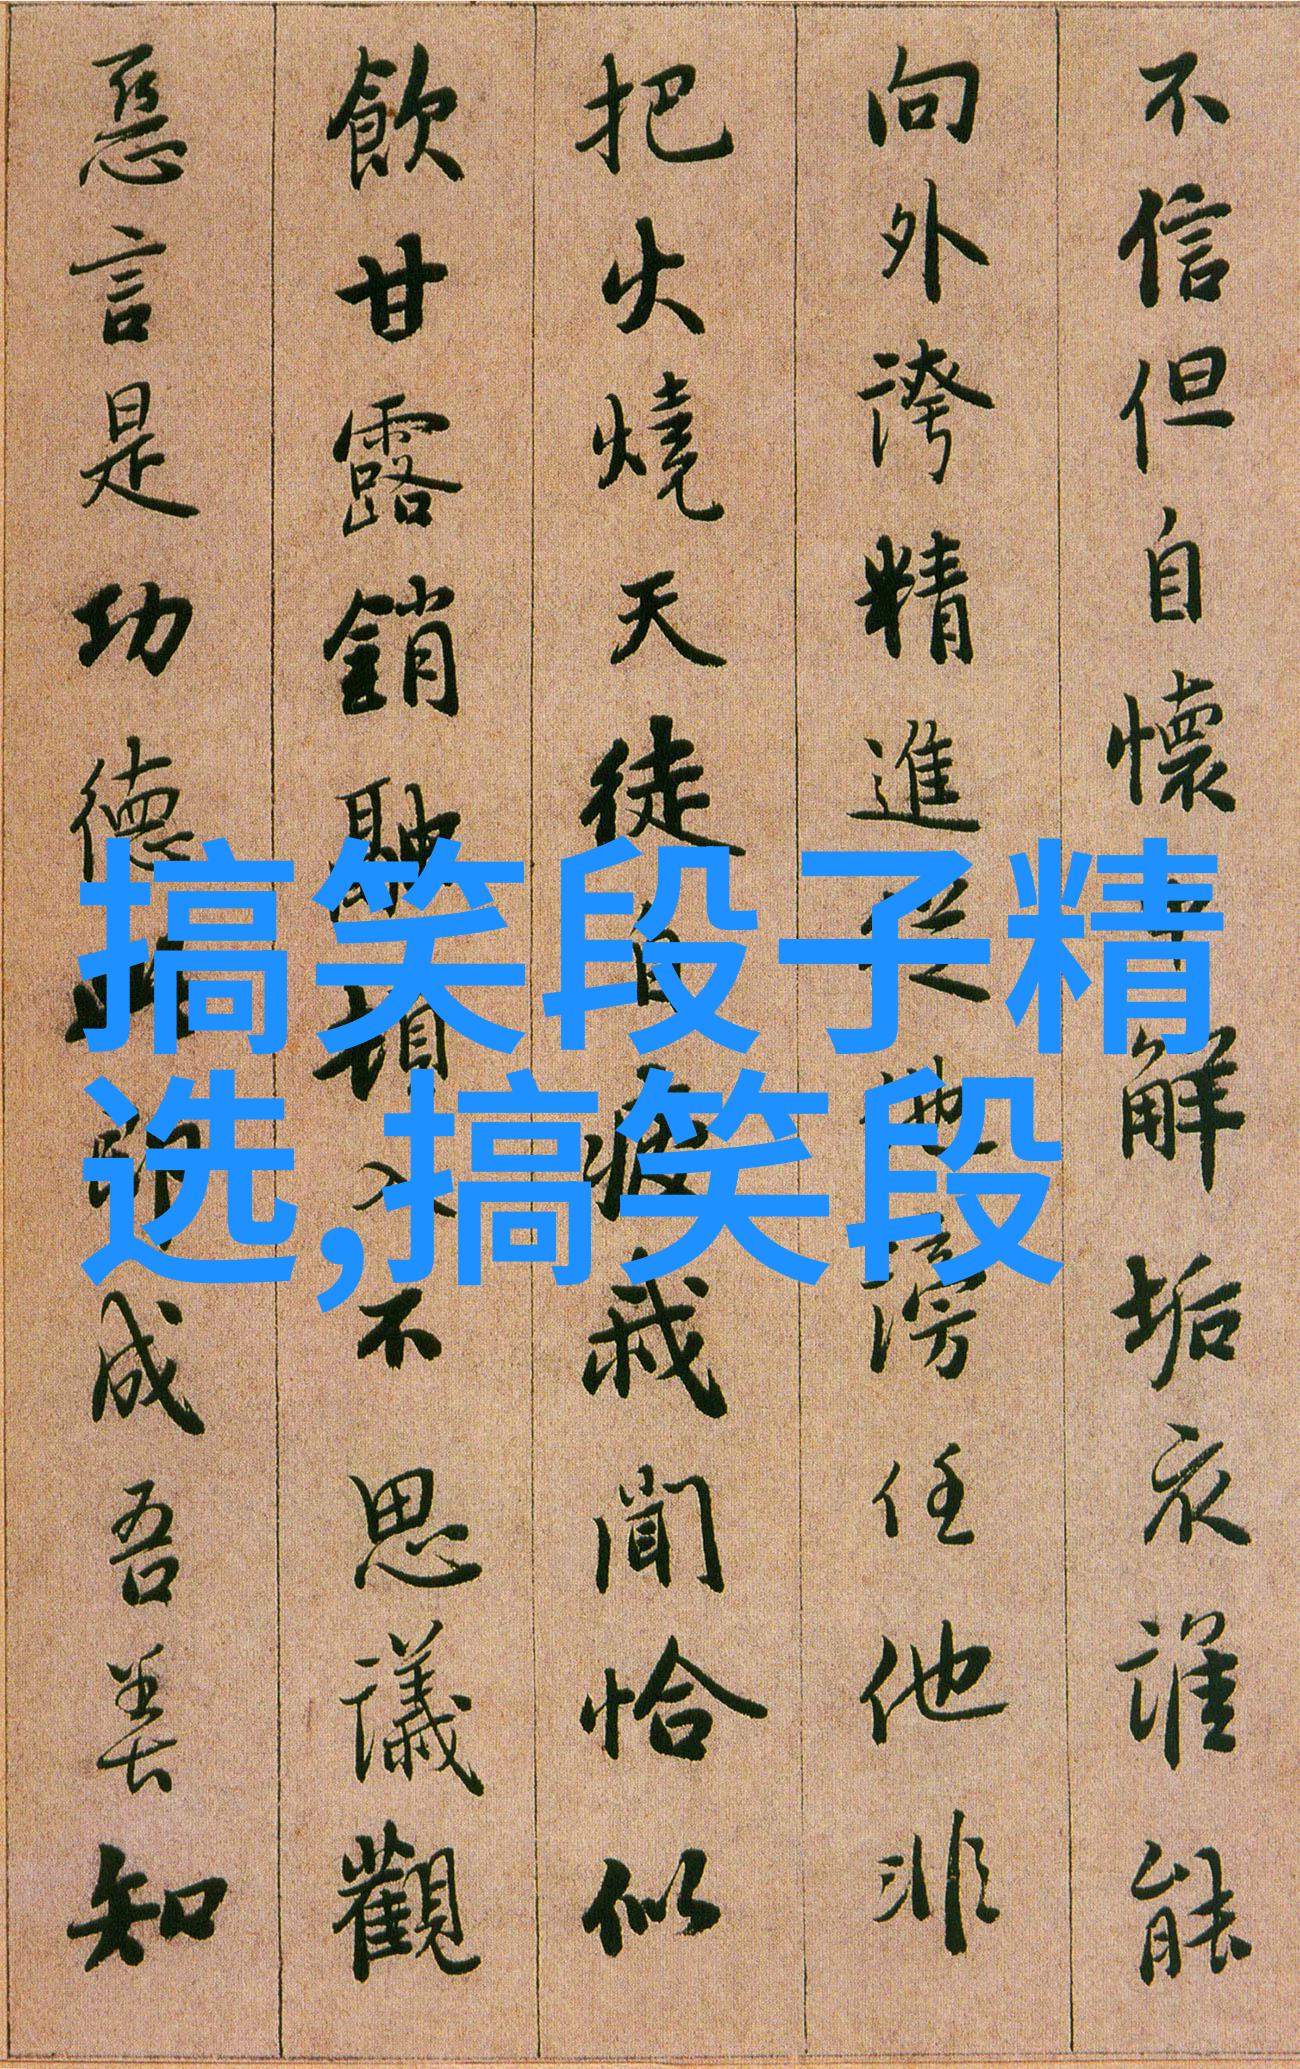 不信但自懷中解垢衣誰能
向外誇精進從他謗任他非
把火燒天徒自疲我聞恰似
飲甘露銷融頓入不思議觀
惡言是功德此即成吾善知
搞笑段子精
选,搞笑段